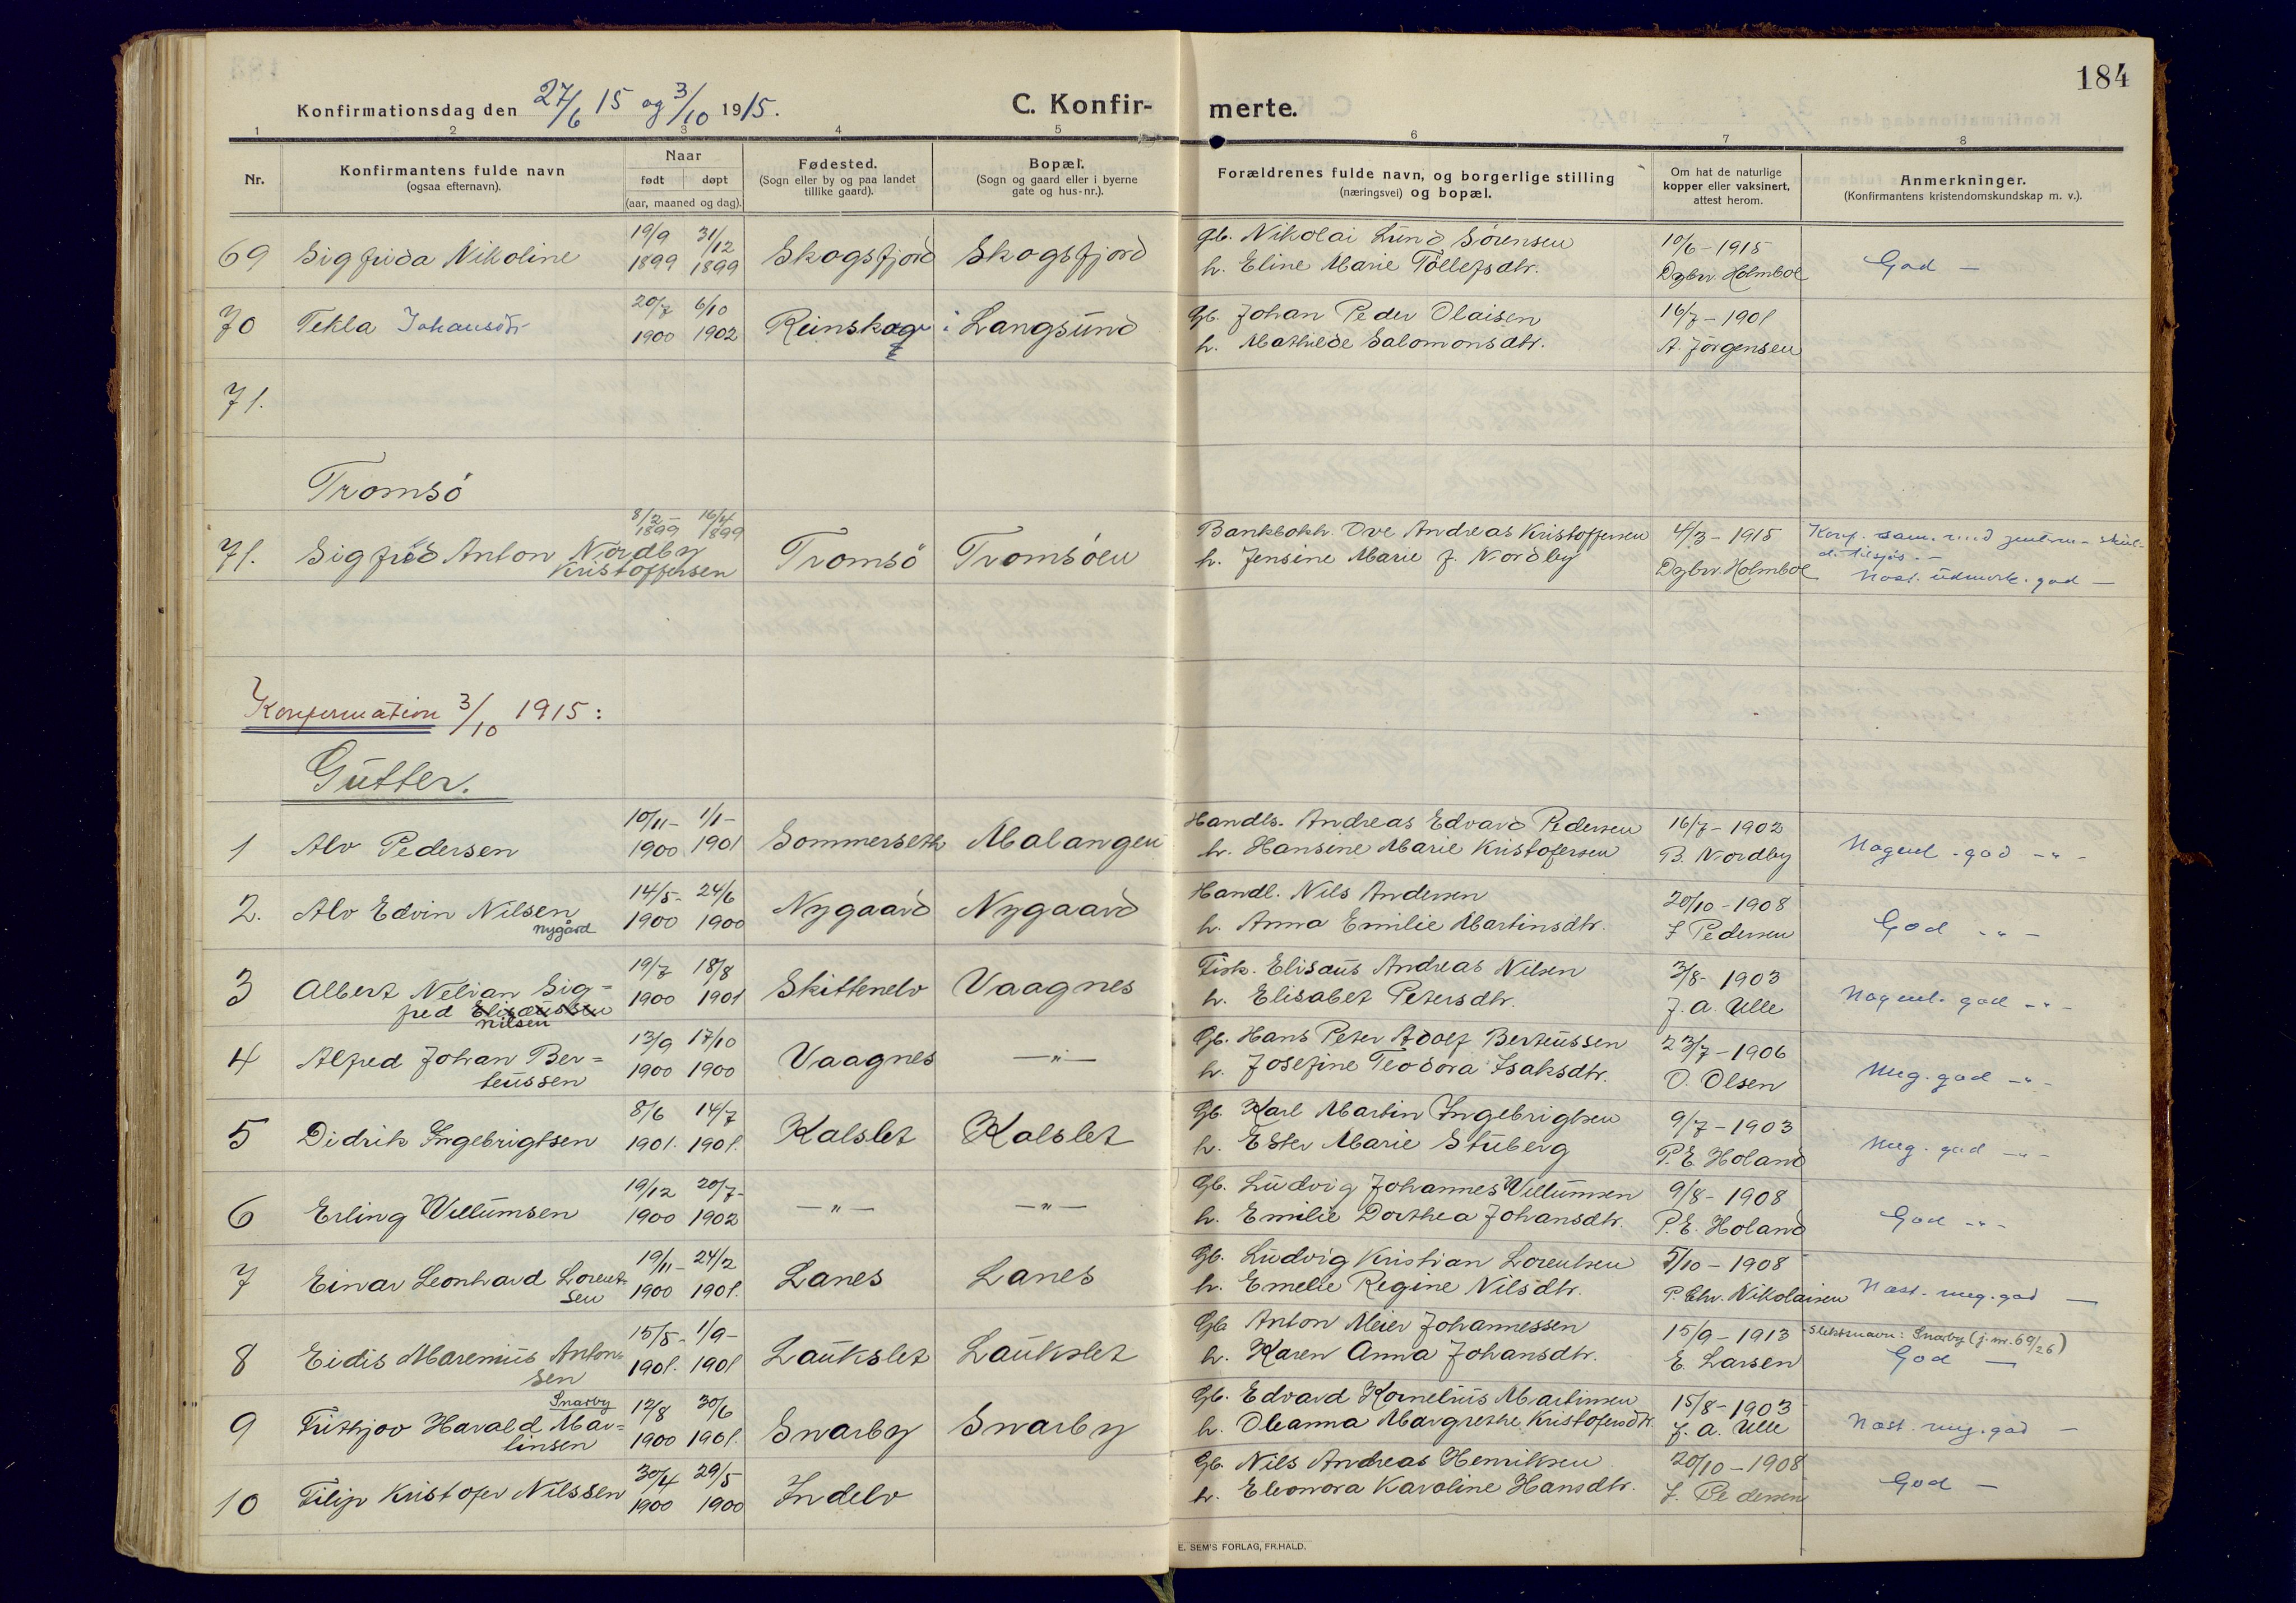 184
Konfirmationsdag den 27/6 15 og 3/10 1915.
C. Konfir-
merte.
1 2 3 4 5 6 7 8
Nr.
Konfirmantens fulde navn
(ogsaa efternavn).
Naar
født døpt
(aar, maaned og dag).
Fødested.
(Sogn eller by og paa landet
tillike gaard).
Bopæl.
(Sogn og gaard eller i byerne
gate og hus-nr.).
Forældrenes fulde navn, og borgerlige stilling
(næringsvei) og bopæl.
Om hat de naturlige
kopper eller vaksinert,
attest herom.
Anmerkninger.
(Konfirmantens kristendomskundskap m. v.).
19/9 31/12 Gb. Nikolai Lund Sørensen 10/6 - 1915
69 Sigfrida Nikoline 1899 1899 Skogsfjord Skogsfjord h. Eline Marie Töllefsdtr. Dgbr. Holmboe God -
20/7 6/10 Gb. Johan Peder Olaisen 16/7 - 1901
70 Tekla Johansdtr 1900 1902 Reinskog Langsund h. Mathilde Salomonsdtr. A. Jörgensen
71.
Tromsö
8/2 - 1899 16/4 1899 Bankbokh. Ove Andreas Kristoffersen 4/3 - 1915 Konf. sam. med
71. Sigfrid Anton Nordby Tromsö Tromsöen h. Jensine Marie f. Nordby Dgbr. Holmboe
Kristoffersen Næst. udmerk. god -
Konfirmation 3/10 1915:
Gutter.
10/11 - 1/1 - Handls. Andreas Edvard Pedersen 16/7 - 1902
1 Alv Pedersen 1900 1901 Sommerseth Malangen h. Hansine Marie Kristofersen B. Nordby Nogenl. god - " -
14/5 - 24/6 Handl. Nils Andersen 20/10 - 1908
2. Alv Edvin Nilsen 1900 1900 Nygaard Nygaard h. Anna Emilie Martinsdtr. J Pedersen God - " -
Nygård
19/7 18/8 Fisk. Elisæus Andreas Nilsen 3/8 - 1903
3 Albert Nelian Sig= 1900 1901 Skittenelv Vaagnes h. Elisabet Petersdtr. J. A. Ulle Nogenl. god - " -
fred Elisæussen
Nilsen
13/9 17/10 Gb. Hans Peter Adolf Berteussen 23/7 - 1906
4 Alfred Johan Ber= 1900 1900 Vaagnes - " - h. Josefine Teodora Isaksdtr. O. Olsen Meg. god - " -
teussen
8/6 14/7 Gb. Karl Martin Ingebrigtsen 9/7 - 1903
5 Didrik Ingebrigtsen 1901. 1901. Kalslet Kalslet h. Ester Marie Stuberg P. E. Holand Meg. god - " -
19/12 20/7 - Gb. Ludvig Johannes Willumsen 9/8 - 1908
6 Erling Willumsen 1900 1902 - " - - " - h. Emilie Dorthea Johansdtr. P. E. Holand God - " -
19/11 - 24/2 Gb. Ludvig Kristian Lorentsen 5/10 - 1908
7 Einar Leonhard Lorent- 1900 1901. Lanes Lanes h. Emelie Regine Nilsdtr. P. Chr. Nikolaisen Næst. meg. god -
sen
15/5 - 1/9 - Gb. Anton Meier Johannessen 15/9 - 1913 Slektsnavn: Snarby (j.nr. 69/26)
8 Eidis Maremius Anton= 1901. 1901 Laukslet Laukslet h. Karen Anna Johansdtr. E. Larsen God -
sen
Snarby 12/8 30/6 Gb. Edvard Kornelius Martinsen 15/8 - 1903
9 Fritjov Harald Mar= 1900 1901. Snarby Snarby h. Oleanna Margrethe Kristofersdtr. J. A. Ulle Næst. meg. god -
tinsen
30/4 29/5 Gb. Nils Andreas Henriksen 20/10 - 1908
10 Filip Kristofer Nilssen 1900 1900 Indelv h. Eleonora Karoline Hansdtr. J. Pedersen God -
E. SEM'S FORLAG, FR.HALD.